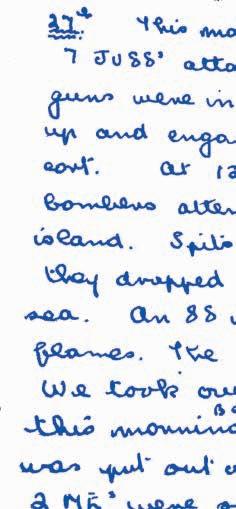 27th This mo
7 JU88s' atta
guns were in
up and enga
sort. At 12
bombers atten
island. Spits
they dropped
sea. An 88 w
flames. The
We took ou
this morning
was put out o
2 ME's were